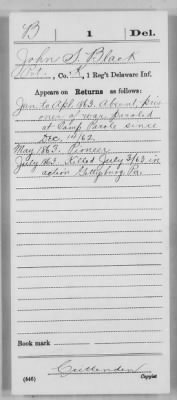 B 1 Del.
John S. Black
Pvt., Co. K, 1 Reg't Delaware Inf.
Appears on Returns as follows:
Jan to Sept 1863. Absent, pris
oner of war, paroled
at Camp Parole since
Dec. 14/62.
May 1863. Pioneer
July 1863. Killed July 3/63 in
action Gettysburg Pa.
Book mark
Crittenden
(546) Copyist